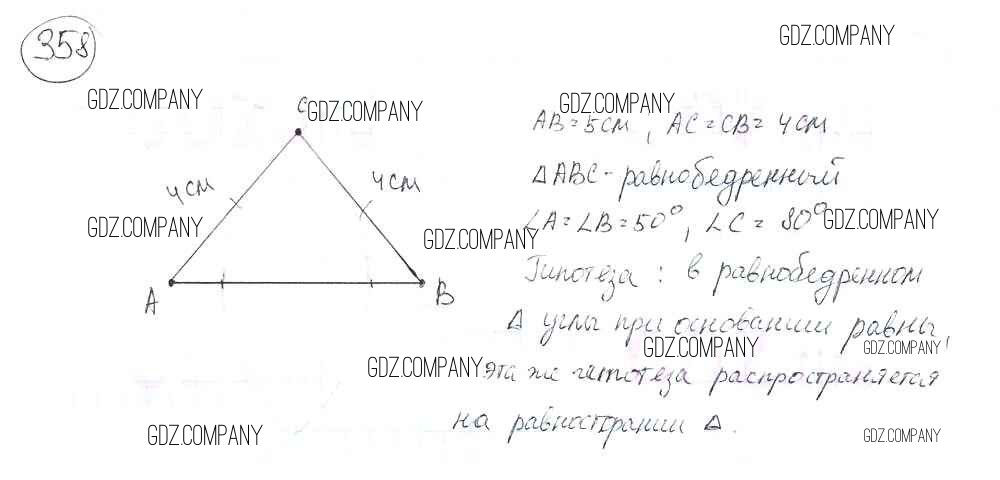 358
GDZ.COMPANY
GDZ.COMPANY
C
GDZ.COMPANY
GDZ.COMPANY
AB = 5см, AC = CB = 4см
4 см
4 см
△ABC - равнобедренный
GDZ.COMPANY
GDZ.COMPANY
∠A = ∠B = 50°, ∠C = 80°
GDZ.COMPANY
A
B
Гипотеза: в равнобедренном
△ углы при основании равны,
GDZ.COMPANY
GDZ.COMPANY
GDZ.COMPANY
эта же гипотеза распространяется
на равносторонний △.
GDZ.COMPANY
GDZ.COMPANY